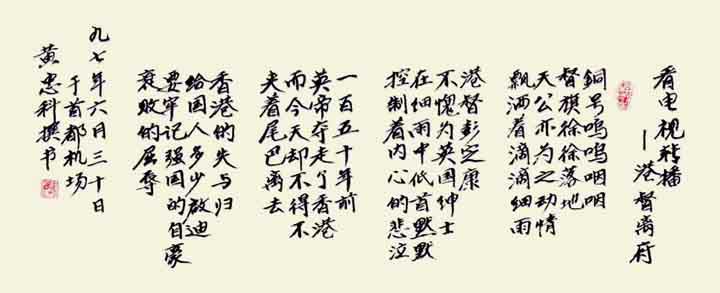 看电视转播
—港督离府
銅号嗚嗚咽咽
督旗徐徐落地
天公亦为之动情
飘洒着滴滴细雨
港督彭定康
不愧为英国绅士
在细雨中低首默默
控制着内心的悲泣
一百五十年前
英帝夺走了香港
而今天却不得不
夹着尾巴离去
香港的失与归
给国人多少启迪
要牢记强国的自豪
衰败的屈辱
九七年六月三十日
于首都机场
黄忠科撰书